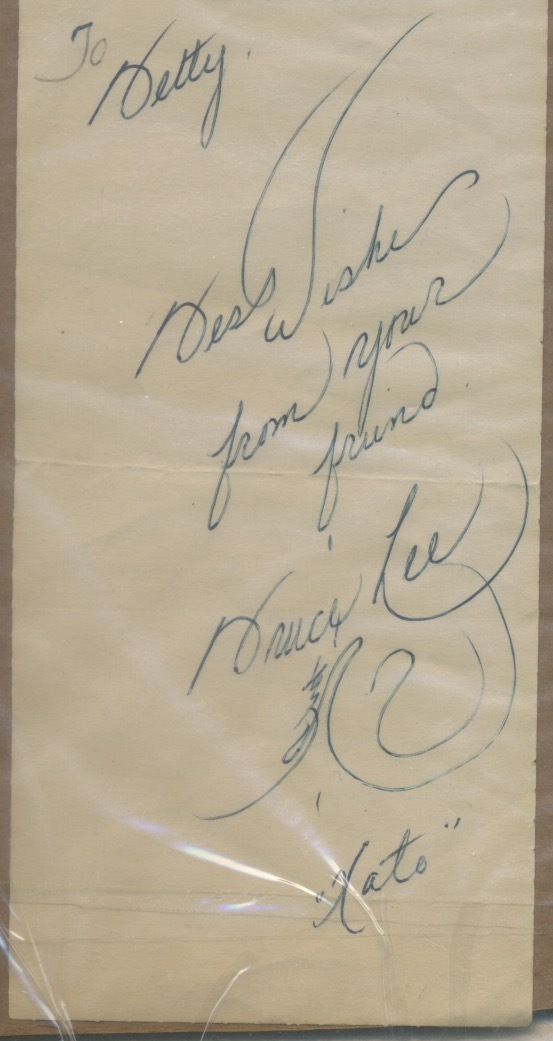 To Betty.
Best Wishes
from your
friend.
Bruce Lee
"Kato"